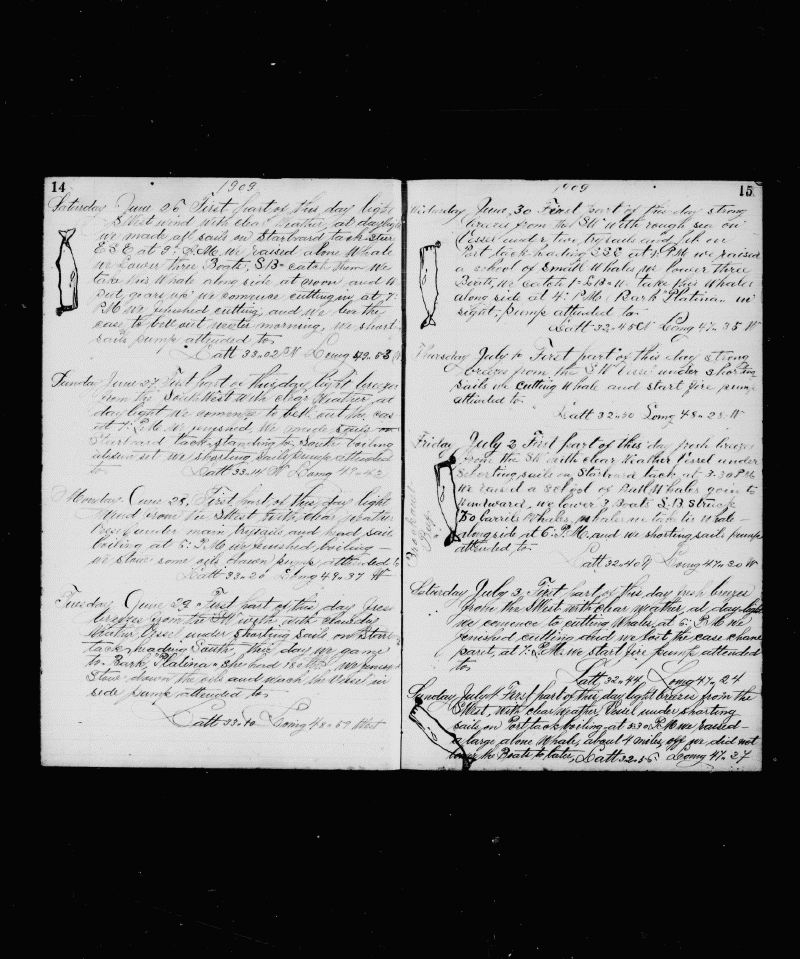 14
1909
Saturday June 26 First part of this day light
S West wind with clear Weather, at daylight
we made all sails on Starboard tack Stur
E S E at 9. A.M. we raised alone Whale
we lower three Boats, S.B. catch them we
take this Whale along side at noon and
put gears up we commence cutting in at 7.
P.M. we finished cutting, and we leave the
case to bell out morning, we short
sails pump attended to
Latt 33-02 N Long 49-53 W
Sunday June 27 First part of this day light breezes
from the South West With clear Weather, at
day light we comence to bell out the case
at 7. P.M. we finished, We made sails on
Starboard tack standing to South boiling
we shorting sails pump attended
to
Latt 33-14 N Long 49-42
Monday June 28, First part of this day light
Wind from the SWest with clear Weather
Vessel under main trysails and head sail
boiling at 6. P.M. we finished boiling
we stove some oil down pump attended to
Latt 33-20 Long 49-37 W
Tuesday June 29 First part of this day fresh
breezes from the SW with cloudy
Weather Vessel under shorting sails on Starboard
tack heading South, this day we gamed
the Bark, Platina She had We finished
Stove down the oil and wash the Vessel in
side pump attended to
Latt 33-10 Long 48-59 West
15
1909
Wednesday June, 30 First part of this day strong
breeze from the SW with rough sea on
Vessel under two trysails and jib on
Port tack heading S S E at 1. P.M. we raised
a school of small Whales we lower three
Boats, we catch 1. we take this Whales
along side at 4. P.M. Bark Platina in
sight. pump attended to.
Latt 32-45 N Long 47-35 W
Thursday July 1 First part of this day strong
breeze from the SW Vessel under shorting
sails we cutting Whale and start fire pump
attended to
Latt 32-50 Long 48-28 W
Friday July 2 First part of this day fresh breezes
from the SW with clear Weather Vessel under
Shorting sails on Starboard tack at 3.30 P.M.
We raised a School of Bull Whales goin to
Windward, we lower 3 Boats S.B. Struck
50 barrels Whales, we take the whale
along side at 6. P.M. and we shorting sails pump
attended to.
Latt 32-40 Long 47-30 W
Saturday July 3, First part of this day fresh breezes
from the SWest with clear Weather, at day light
we comence to cutting Whales, at 6. P.M. We
finished cutting and we lost the case chane
paret, at 7. P.M. We start fire pump attended
to
Latt, 32-44, Long 47-24
Sunday July 4 First part of this day light breezes from the
SWest, With clear Weather Vessel under shorting
sails, on Port tack boiling at 5.30 P.M. we raised
a large alone Whale, about 4 miles off we did not
lower the Boats to later, Latt 32-56 Long 47-27